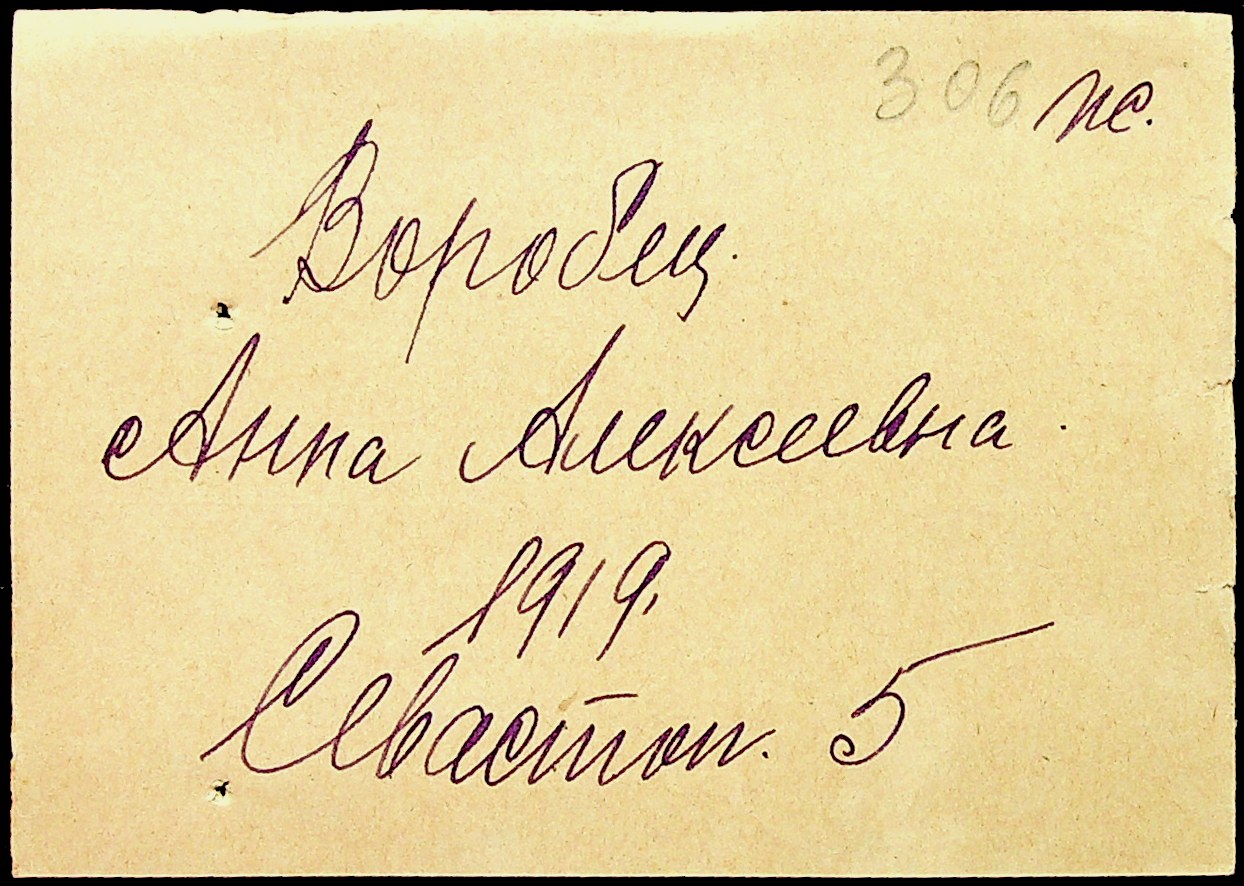 306 пс.
Воробец.
Анна Алексеевна.
1919.
Севастоп. 5